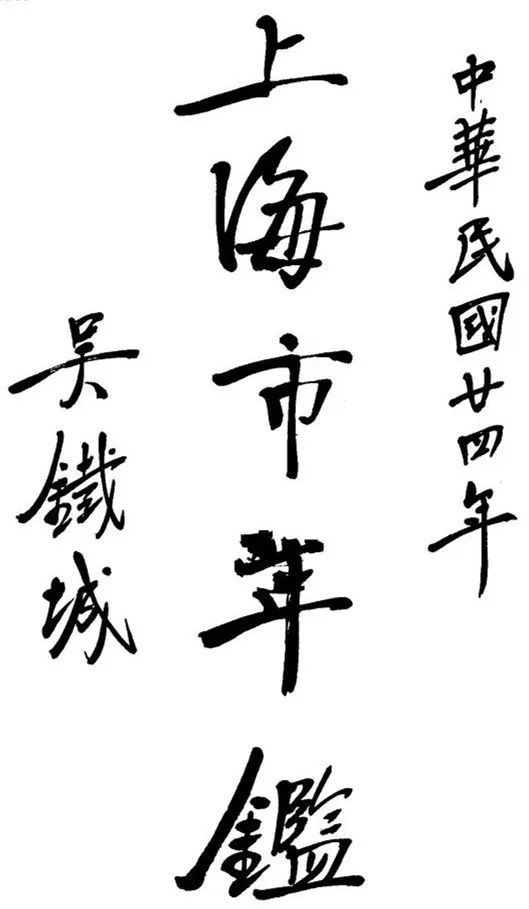 中華民國廿四年
上海市年鑑
吳鐵城